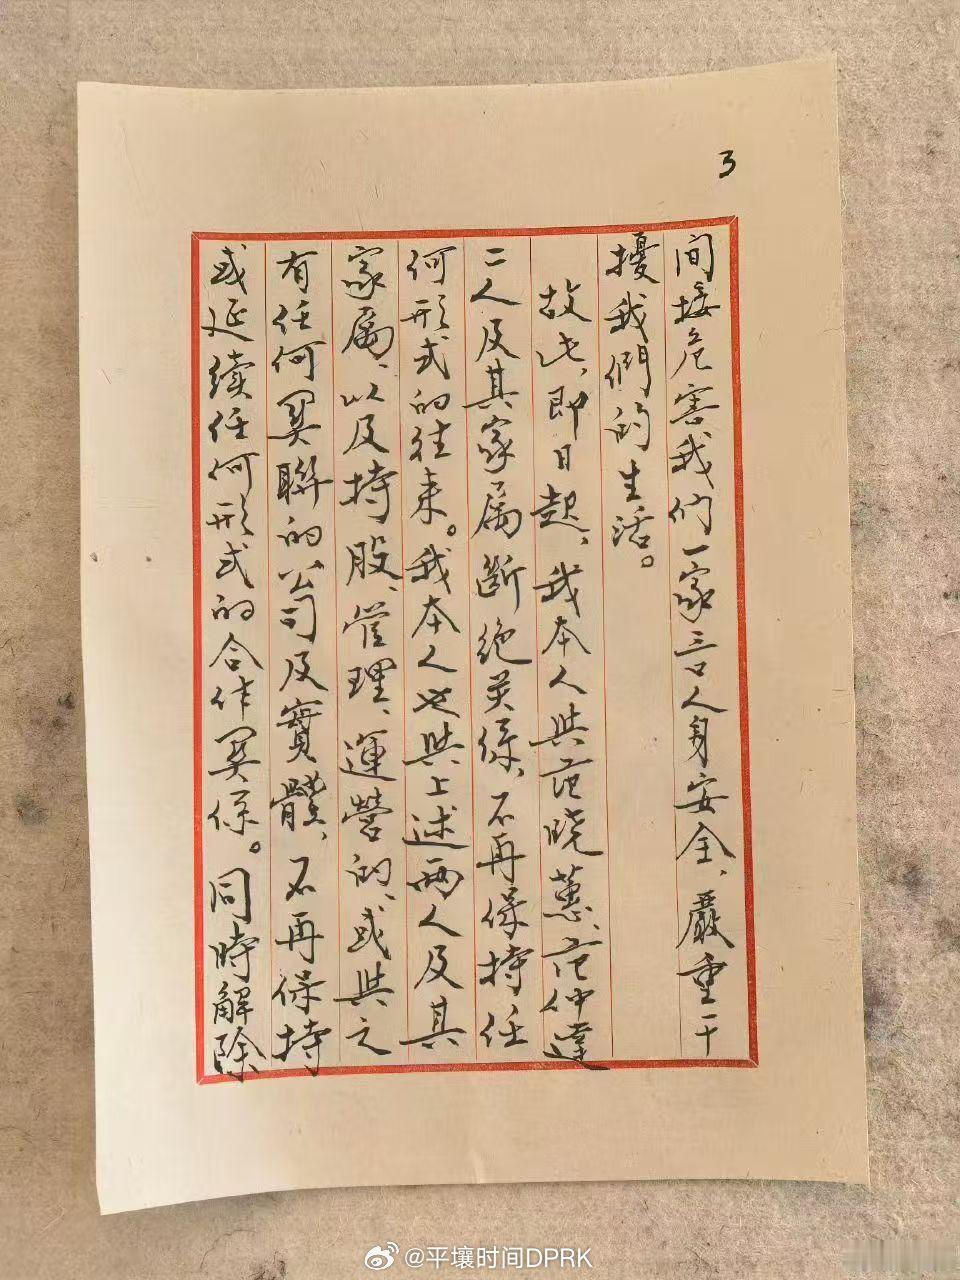 3
间接危害我们一家三口人身安全、嚴重干
擾我們的生活。
故此、即日起、我本人與范晓蕙、范仲達
二人及其家属斷绝关係、不再保持任
何形式的往来。我本人也與上述两人及其
家属、以及持股、管理、運營的、或與之
有任何関聯的公司及實體、不再保持
或延续任何形式的合作関係。同時解除
@平壤时间DPRK